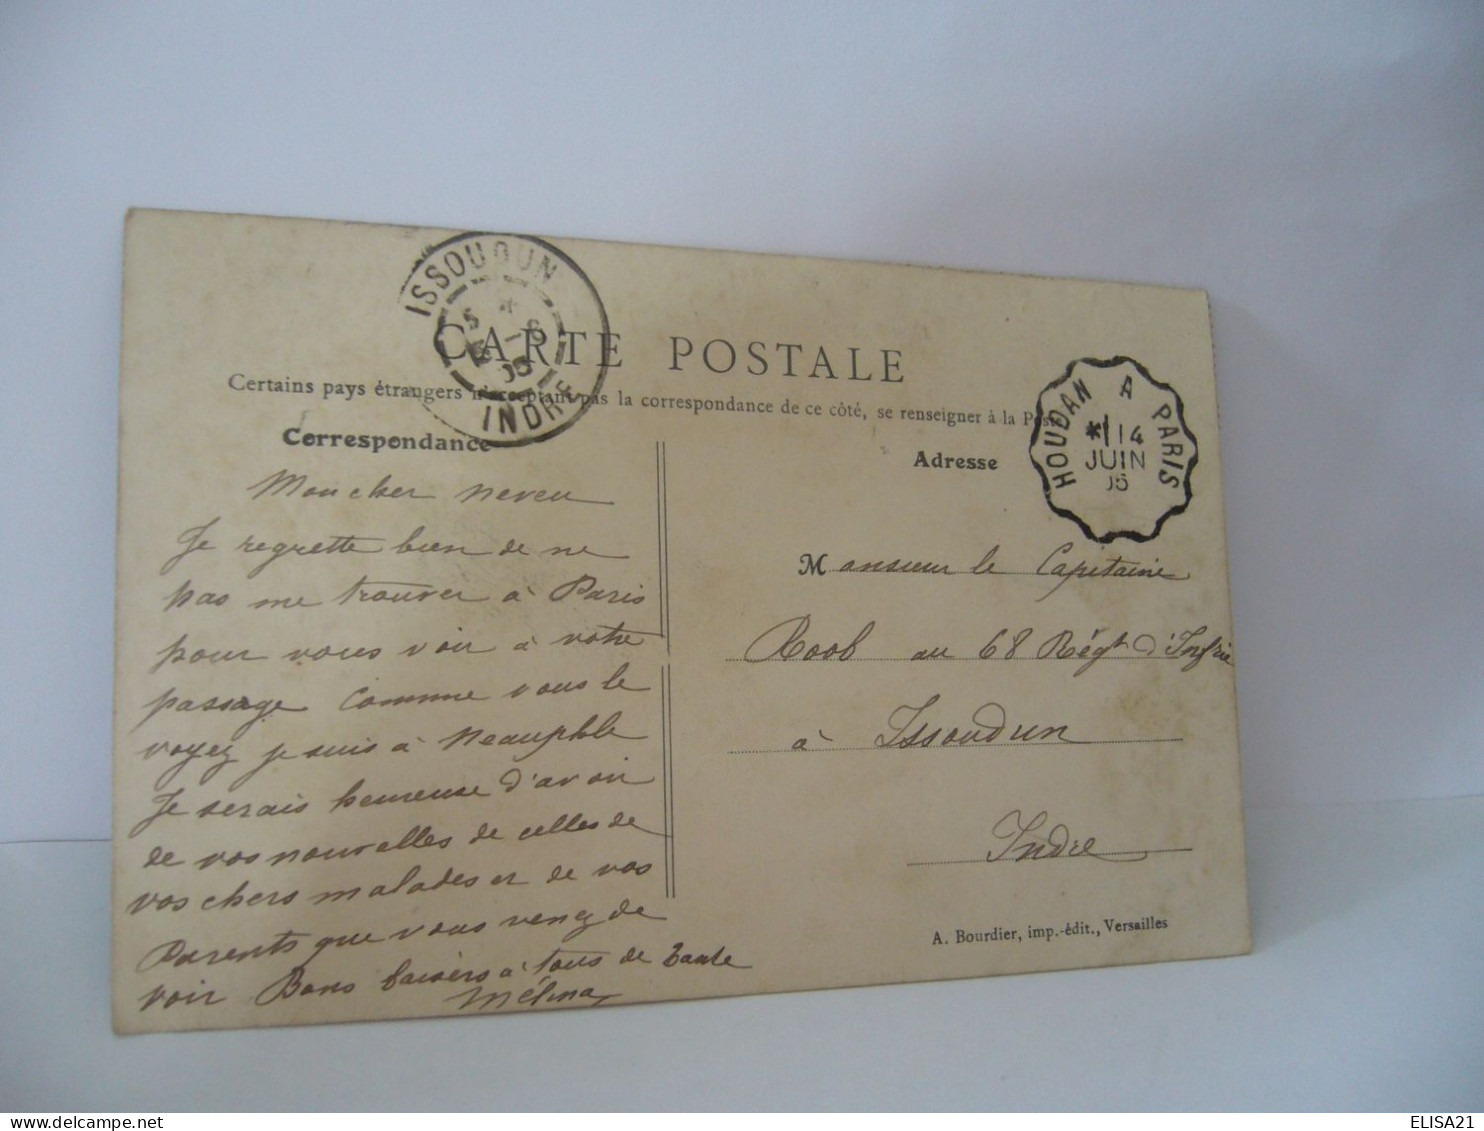 ISSOUDUN
5 *
15 -6
05
INDRE
CARTE POSTALE
Certains pays étrangers n'acceptant pas la correspondance de ce côté, se renseigner à la Poste
HOUDAN A PARIS
* 14
JUIN
05
Correspondance
Adresse
Mon cher neveu
Je regrette bien de ne
pas me trouver à Paris
pour vous voir à votre
passage comme vous le
voyez je suis à Neauphle
Je serais heureuse d'avoir
de vos nouvelles de celles de
vos chers malades et de vos
Parents que vous venez de
voir Bons baisers à tous de tante
Mélina
Monsieur le Capitaine
Roob au 68 Régt d'Infrie
à Issoudun
Indre
A. Bourdier, imp.-édit., Versailles
ELISA21